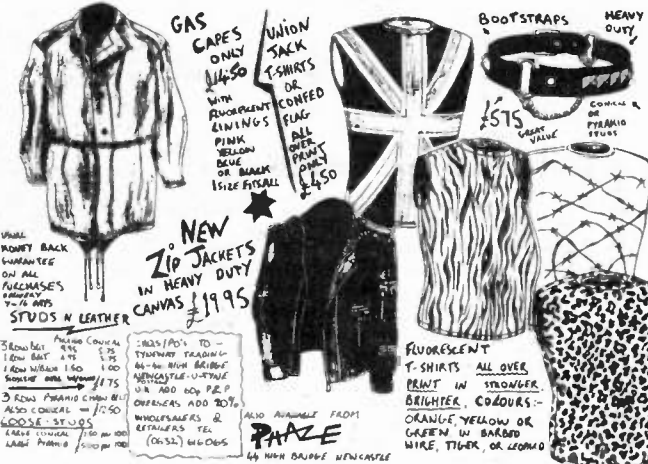 GAS
CAPES
ONLY
£14.50
WITH
FLUORESCENT
LININGS
PINK
YELLOW
BLUE
OR BLACK
1 SIZE FITS ALL
UNION
JACK
T-SHIRTS
OR
CONFED
FLAG
ALL
OVER
PRINT
ONLY
£4.50
BOOTSTRAPS
HEAVY
DUTY
£5.75
GREAT
VALUE
CONICAL
OR
PYRAMID
STUDS
USUAL
MONEY BACK
GUARANTEE
ON ALL
PURCHASES
DELIVERY
7-16 DAYS
NEW
ZIP JACKETS
IN HEAVY DUTY
CANVAS £19.95
STUDS N LEATHER
PYRAMID CONICAL
3 ROW BELT
1 ROW BELT
1 ROW W/BAND 1.50 1.00
£1.75
3 ROW PYRAMID CHAIN BELT
ALSO CONICAL
LOOSE-STUDS
LARGE CONICAL
LARGE PYRAMID
CHQS/PO'S TO -
TYNEWAY TRADING
44-46 HIGH BRIDGE
NEWCASTLE-U-TYNE
U.K ADD 60p P&P
OVERSEAS ADD 20%
WHOLESALERS &
RETAILERS TEL
(0632)
ALSO AVAILABLE FROM
PHAZE
44 HIGH BRIDGE NEWCASTLE
FLUORESCENT
T-SHIRTS ALL OVER
PRINT IN STRONGER,
BRIGHTER, COLOURS:-
ORANGE, YELLOW OR
GREEN IN BARBED
WIRE, TIGER, OR LEOPARD